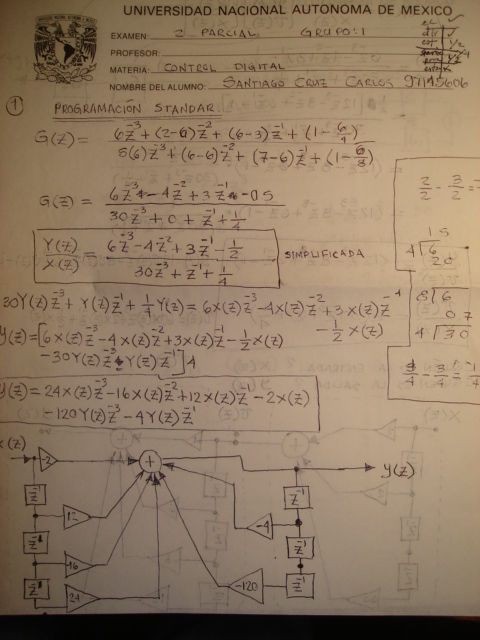 UNIVERSIDAD NACIONAL AUTONOMA DE MEXICO
EXAMEN: 2 PARCIAL GRUPO: 1
PROFESOR:
MATERIA: CONTROL DIGITAL
NOMBRE DEL ALUMNO: SANTIAGO CRUZ CARLOS 97145606
① PROGRAMACIÓN STANDAR
G(z) = 6z^-3 + (2-6)z^-2 + (6-3)z^-1 + (1-6/4) / 5(6)z^-3 + (6-6)z^-2 + (7-6)z^-1 + (1-6/8)
G(z) = 6z^-3 - 4z^-2 + 3z^-1 - 0.5 / 30z^-3 + 0 + z^-1 + 1/4
Y(z)/X(z) = 6z^-3 - 4z^-2 + 3z^-1 - 1/2 / 30z^-3 + z^-1 + 1/4 SIMPLIFICADA
30Y(z)z^-3 + Y(z)z^-1 + 1/4 Y(z) = 6x(z)z^-3 - 4x(z)z^-2 + 3x(z)z^-1
- 1/2 x(z)
y(z) = [6x(z)z^-3 - 4x(z)z^-2 + 3x(z)z^-1 - 1/2 x(z)
- 30Y(z)z^-3 - Y(z)z^-1] 4
y(z) = 24x(z)z^-3 - 16x(z)z^-2 + 12x(z)z^-1 - 2x(z)
- 120Y(z)z^-3 - 4Y(z)z^-1
2/2 - 3/2 =
1.5
4 6
20
8 6
0 7
4 30
x(z) -2 + y(z)
z^-1 z^-1
12 -4
z^-1 z^-1
-16 -120
z^-1 z^-1
24